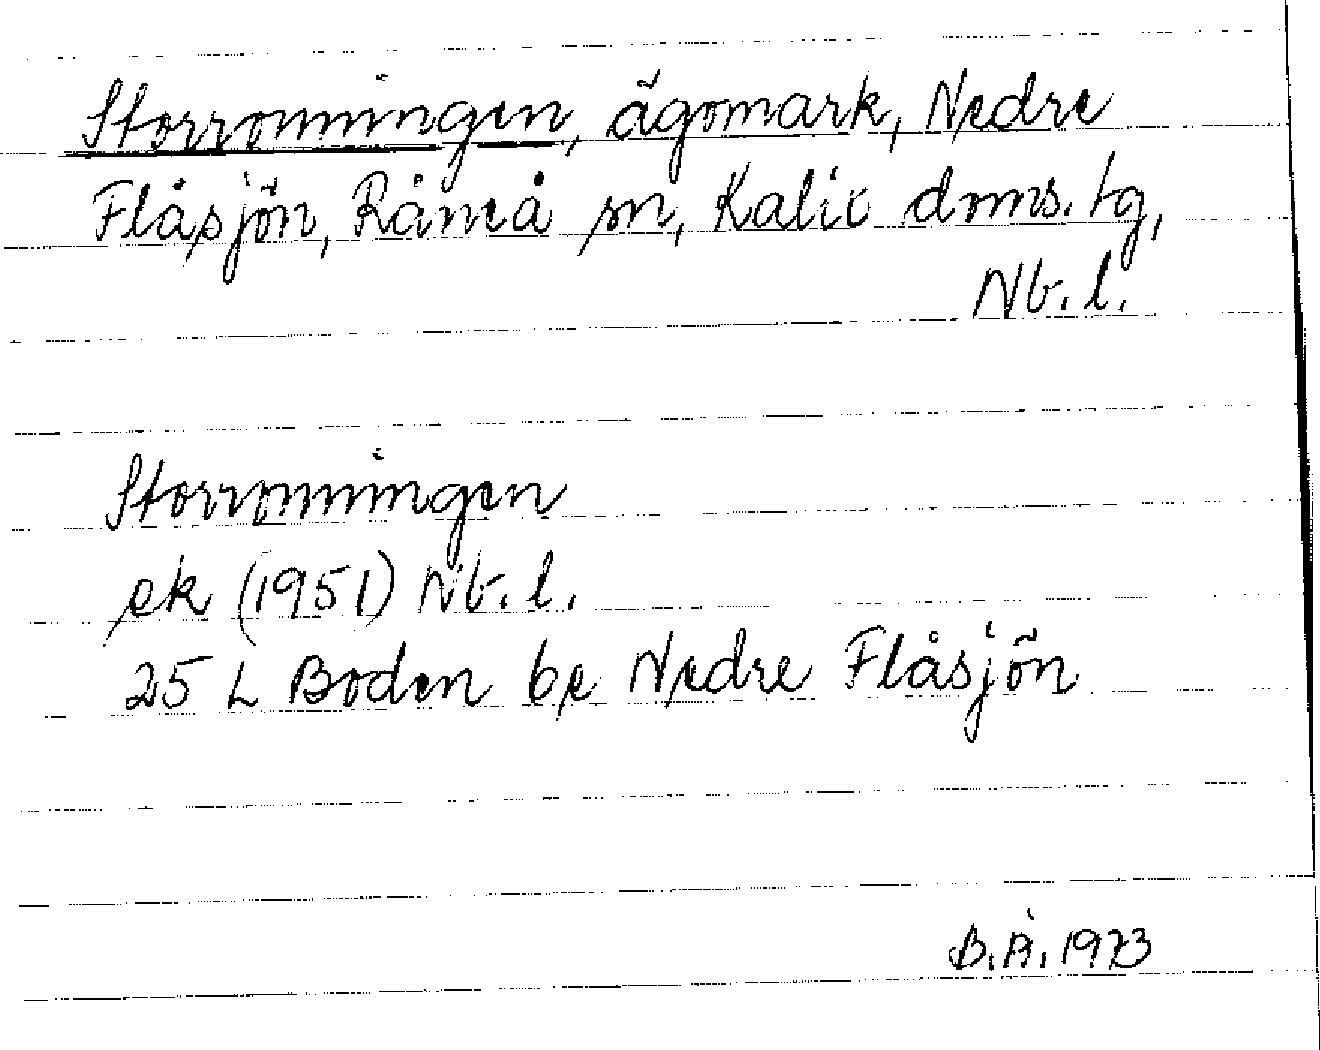 Storronningen, ägomark, Nedre
Flåsjön, Råneå sn, Kalix doms.tg,
Nb.l.
Storronningen
ek (1951) Nb.l.
25 L Boden be Nedre Flåsjön
B.Å. 1973